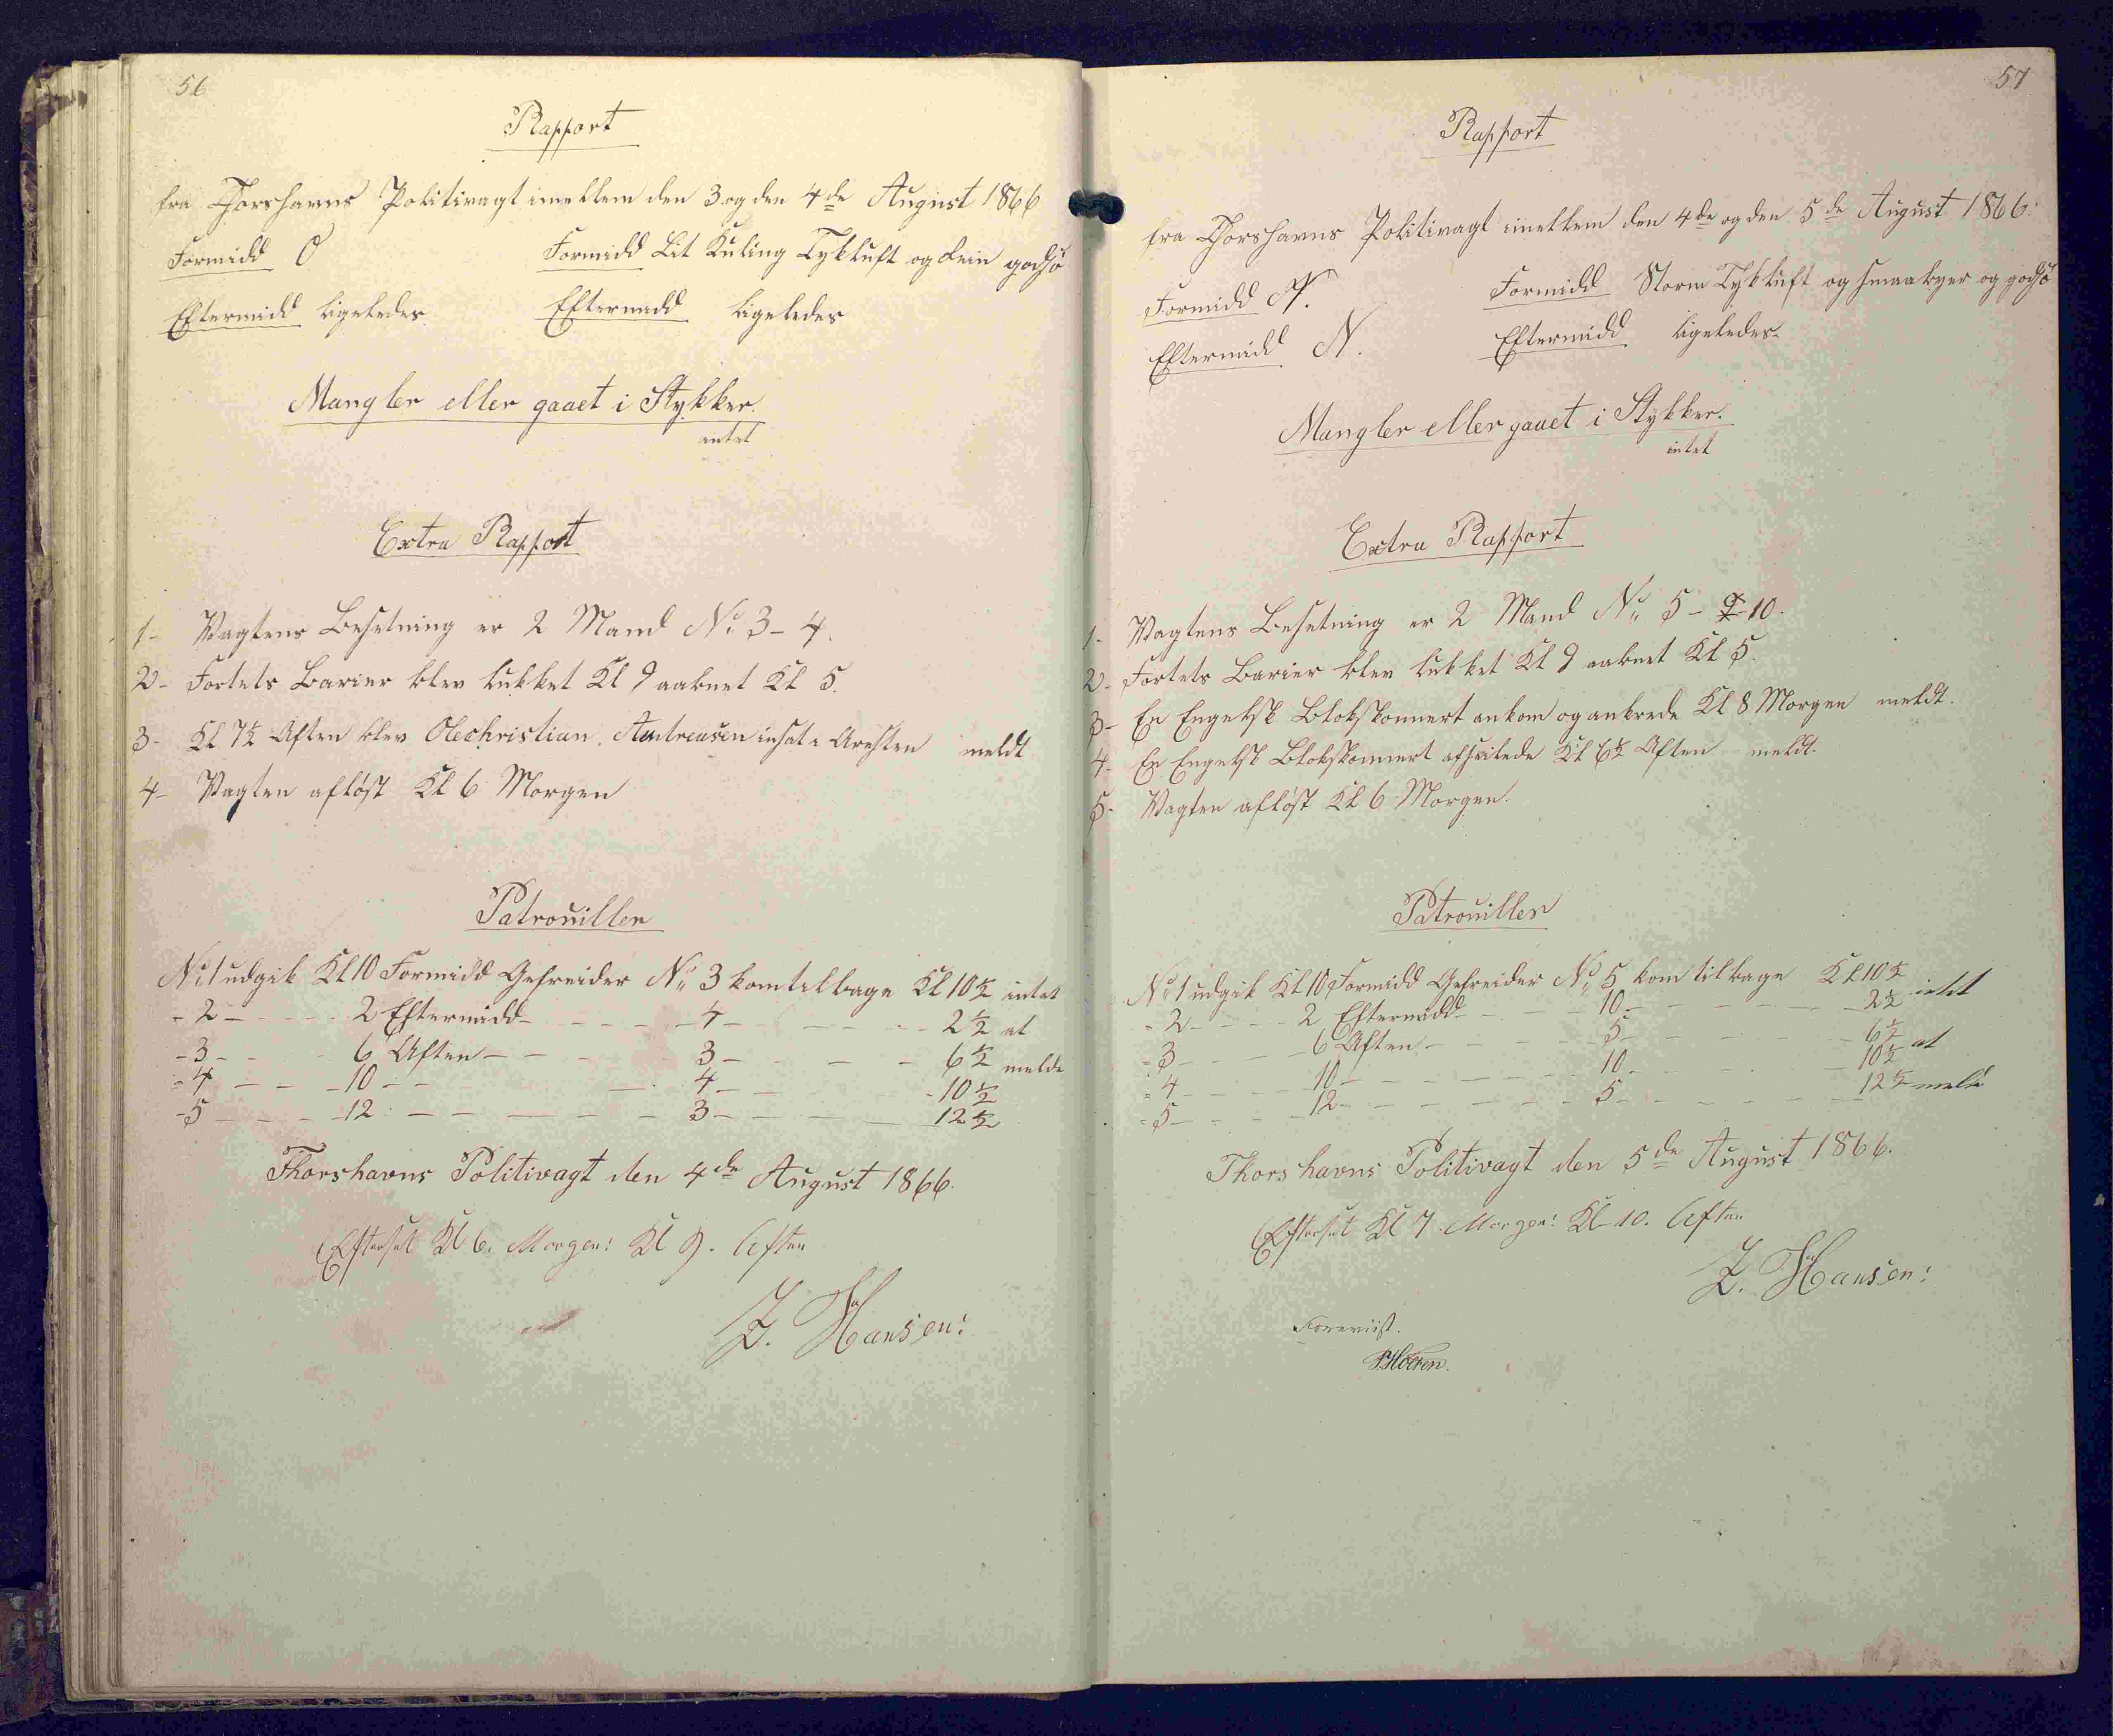 56
Rapport
fra Thorshavns Politivagt imellem den 3. og den 4de August 1866
Formidd O Formidd Lit Kuling Tykluft og Rein godsø
Eftermidd ligeledes Eftermidd ligeledes
Mangler eller gaaet i Stykker.
intet
Extra Rapport
1- Vagtens Besetning er 2 Mand No 3-4.
2- Fortets Barier blev lukket Kl 9 aabnet Kl 5.
3- Kl 7½ Aften blev Olechristian Antreasen insat i Aresten meldt
4- Vagten afløst Kl 6 Morgen
Patrouiller
No 1 udgik Kl 10 Formidd Gefreider No 3 kom tilbage Kl 10½ intet
- 2 - - - 2 Eftermidd - - - 4 - - - 2½ at
- 3 - - 6 Aften - - - 3 - - - 6½ melde
- 4 - - - 10 - - - 4 - - - 10½
- 5 - - - 12 - - - 3 - - - 12½
Thorshavns Politivagt den 4de August 1866.
Efterset Kl 6. Morgen: Kl 9. Aften
Z. Hansen:
57
Rapport
fra Thorshavns Politivagt imellem den 4de og den 5de August 1866.
Formidd N. Formidd Storm Tykluft og smaabyer og godsø
Eftermidd N. Eftermidd ligeledes
Mangler eller gaaet i Stykker.
intet
Extra Rapport
1- Vagtens Besetning er 2 Mand No 5 - 10.
2- Fortets Barier blev lukket Kl 9 aabnet Kl 5.
3- En Engelsk Blokskonnert ankom og ankrede Kl 8 Morgen meldt.
4- En Engelsk Blokskonnert afseilede Kl 6½ Aften meldt.
5- Vagten afløst Kl 6 Morgen.
Patrouiller
No 1 udgik Kl 10 Formidd Gefreider No 5 kom tilbage Kl 10½ intet
- 2 - - - 2 Eftermidd - - - 10 - - - 2½
- 3 - - - 6 Aften - - - 5 - - - 6½ at
- 4 - - - 10 - - - 10 - - - 10½
- 5 - - - 12 - - - 5 - - - 12½ melde
Thorshavns Politivagt den 5de August 1866.
Efterset Kl 7 Morgen: Kl 10. Aften
Z. Hansen:
Foreviist.